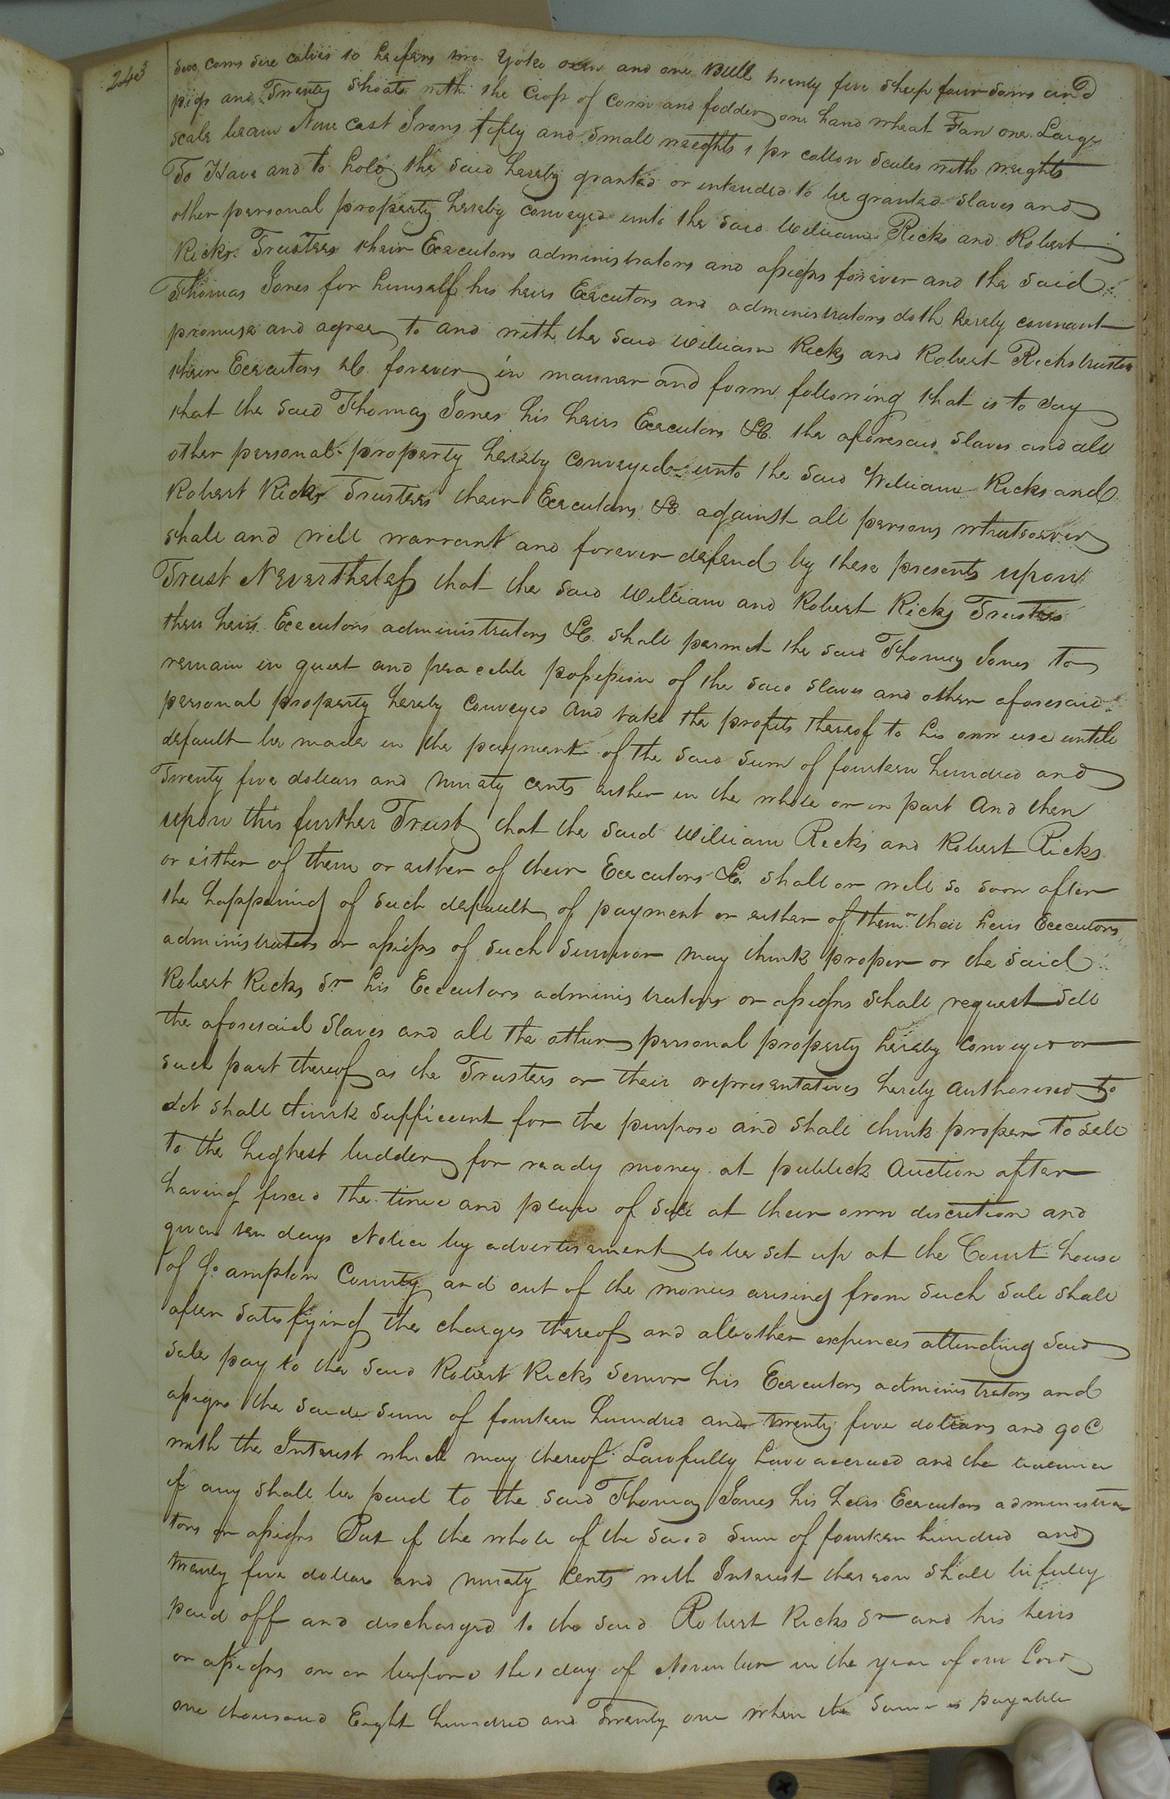 243
five cows five calves 10 heifers two Yoke oxen and one Bull twenty five sheep four sows and
pigs and Twenty Shoats with the Crop of Corn and fodder one hand wheat Fan one Large
scale beam Nine cast Irons fifty and small weights 1 pr cotton Scales with weights
To Have and to hold the said hereby granted or intended to be granted slaves and
other personal property hereby conveyed unto the said William Ricks and Robert
Ricks Trustees their Executors administrators and assigns forever and the said
Thomas Jones for himself his heirs Executors and administrators doth hereby covenant
promise and agree to and with the said William Ricks and Robert Ricks trustees
their Executors &C. forever in manner and form following that is to say
that the said Thomas Jones his heirs Executors &C. the aforesaid slaves and all
other personal property hereby conveyed unto the said William Ricks and
Robert Ricks Trustees their Executors &C. against all persons whatsoever
shall and will warrant and forever defend by these presents upon
Trust Nevertheless that the said William and Robert Ricks Trustees
their heirs Executors administrators &C. shall permit the said Thomas Jones to
remain in quiet and peaceable possession of the said slaves and other aforesaid
personal property hereby conveyed and take the profits thereof to his own use untill
default be made in the payment of the said sum of fourteen hundred and
Twenty five dollars and ninety cents either in the whole or in part and then
upon this further Trust that the said William Ricks and Robert Ricks
or either of them or either of their Executors &C. shall or will so soon after
the happening of such default of payment or either of them their heirs Executors
administrators or assigns of such survivor may think proper or the said
Robert Ricks Sr his Executors administrators or assigns shall request sell
the aforesaid slaves and all the other personal property hereby conveyed or
such part thereof as the Trustees or their representatives hereby authorised to
act shall think sufficient for the purpose and shall think proper to sell
to the highest bidder for ready money at publick auction after
having fixed the time and place of sale at their own discretion and
given ten days Notice by advertisement to be set up at the Court house
of So ampton County and out of the monies arising from such sale shall
after satisfying the charges thereof and all other expences attending said
sale pay to the said Robert Ricks Senior his Executors administrators and
assigns the said sum of fourteen hundred and twenty five dollars and 90 C
with the Interest which may thereof Lawfully have accrued and the
if any shall be paid to the said Thomas Jones his heirs Executors administra-
tors or assigns But if the whole of the said sum of fourteen hundred and
twenty five dollars and ninety cents with Interest thereon shall be fully
paid off and discharged to the said Robert Ricks Sr and his heirs
or assigns on or before the 1 day of November in the year of our Lord
one thousand Eight hundred and Twenty one when the same is payable